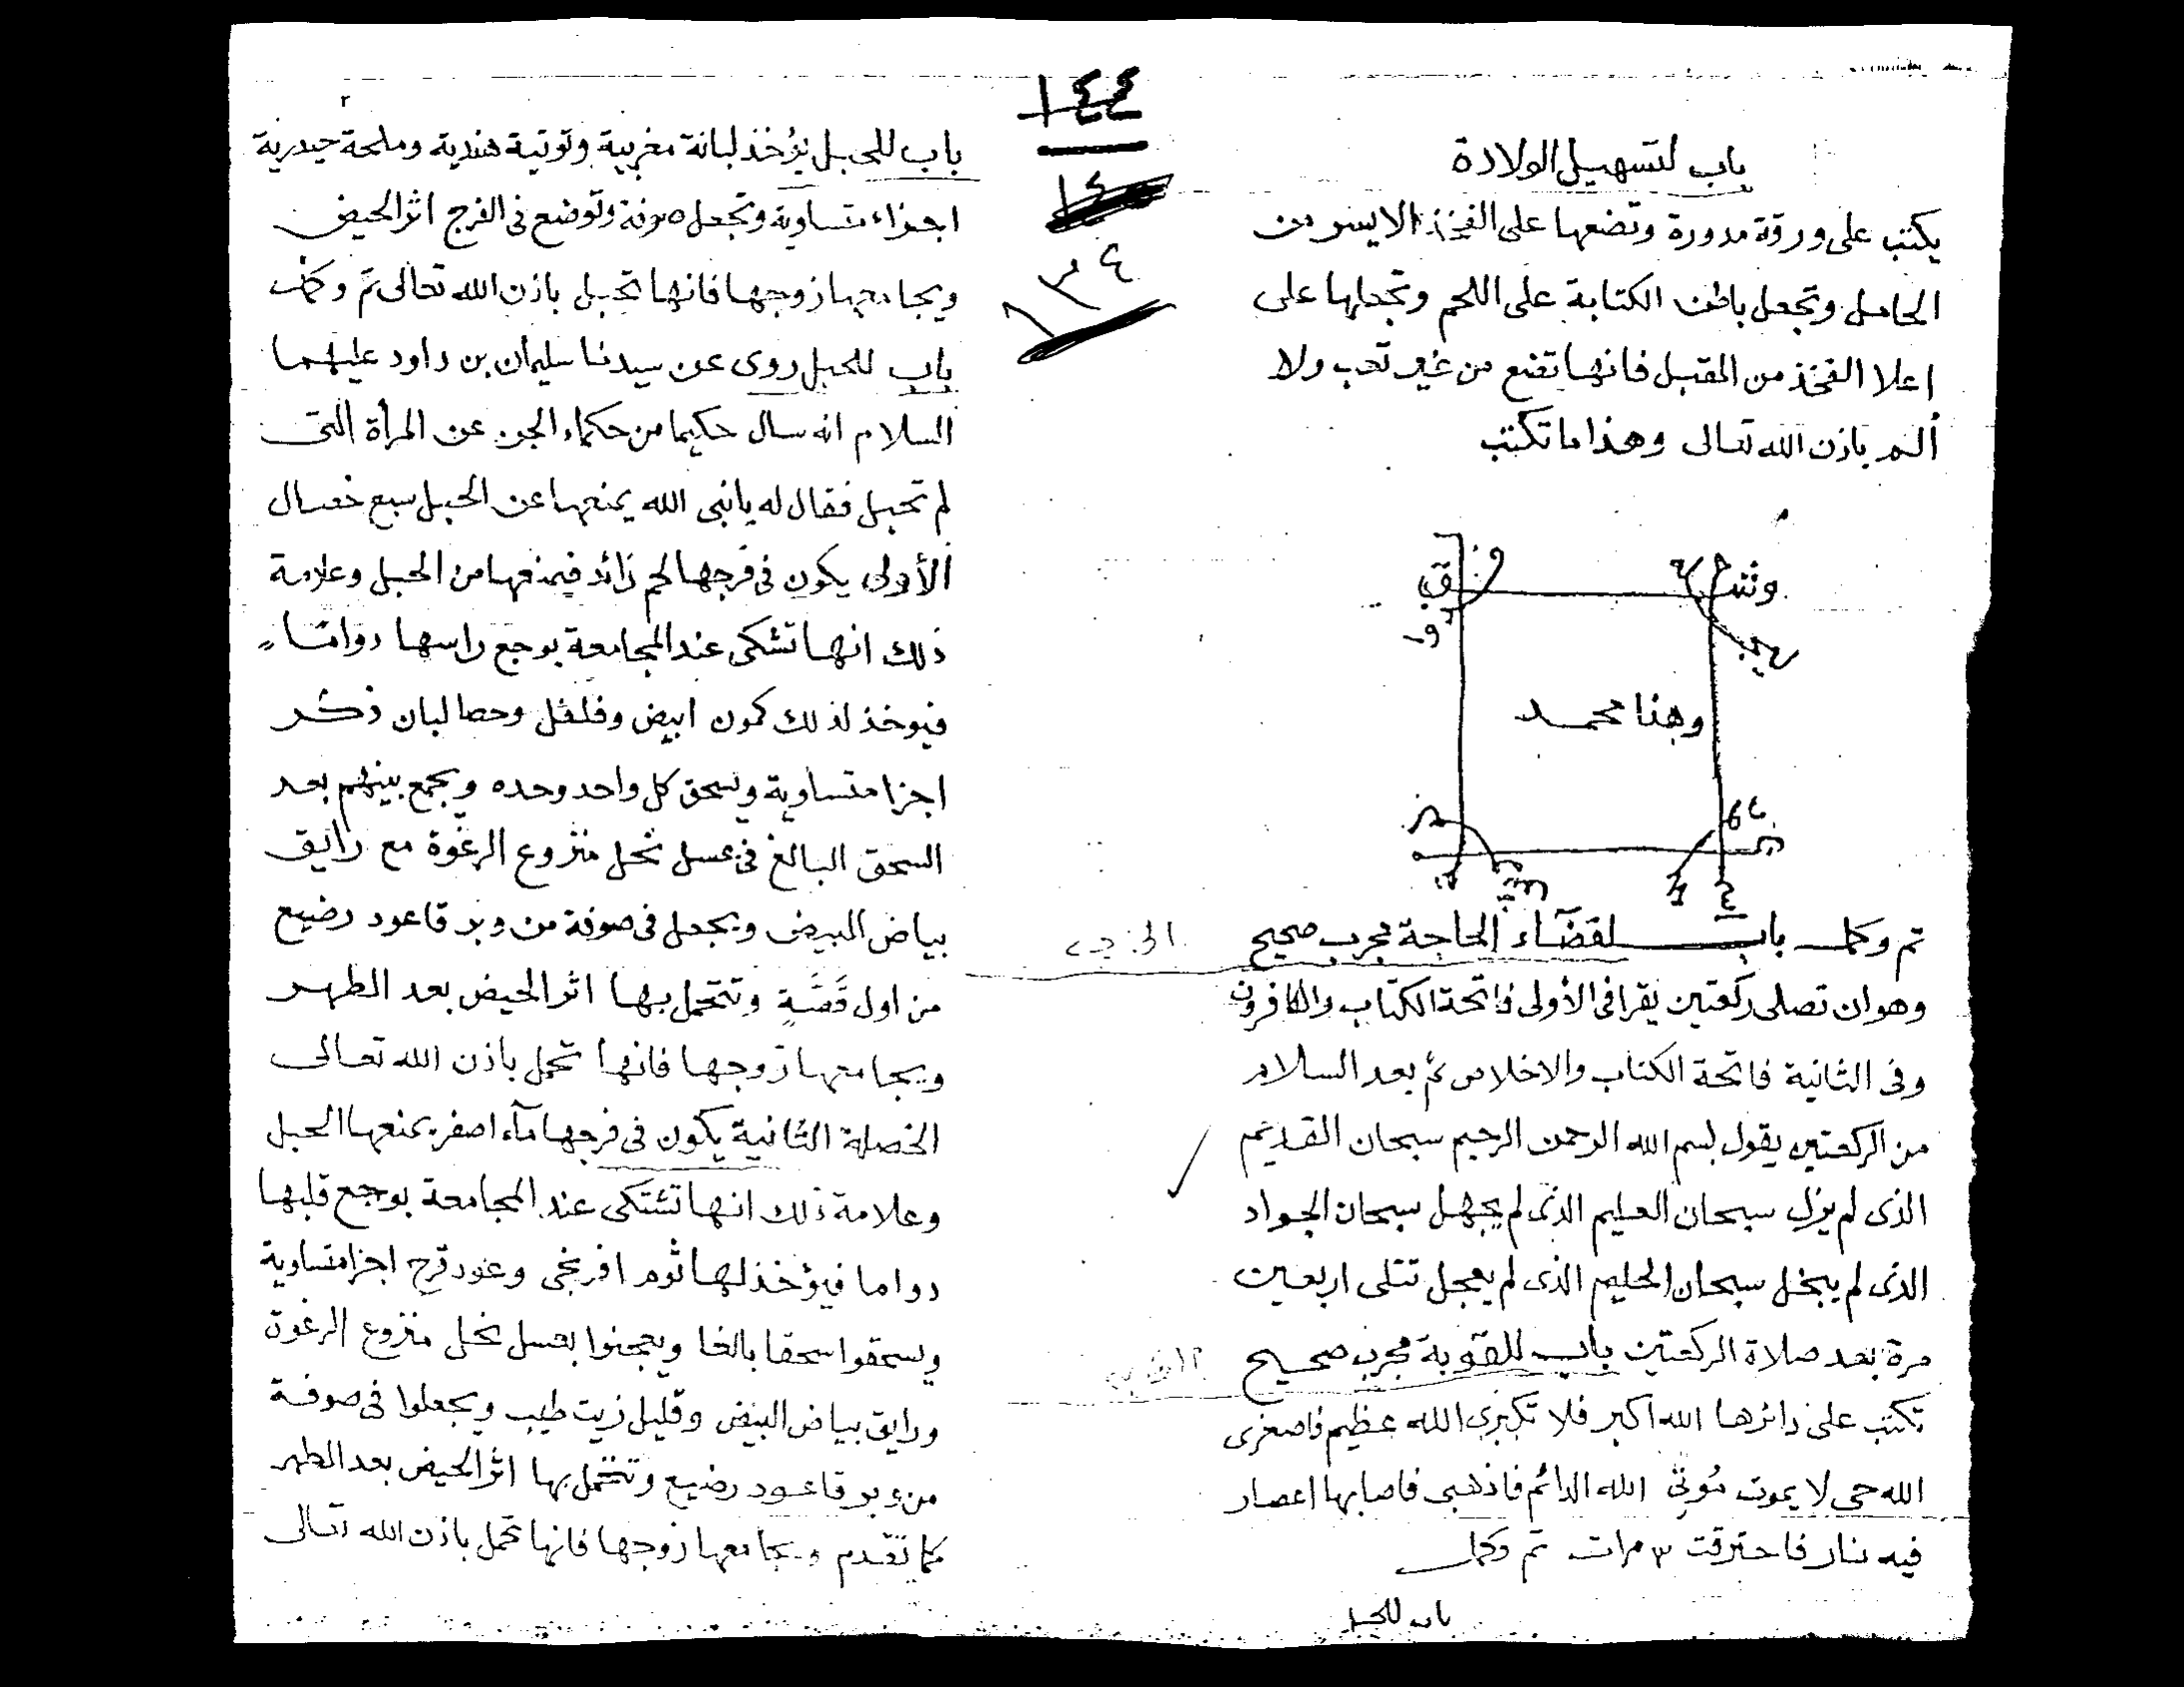 باب لتسهيل الولادة
يكتب على ورقة مدورة وتضعها على الفخذ الايسر من
الحامل وتجعل باطن الكتابة على اللحم وتجعلها على
اعلا الفخذ من المقبل فانها تضع من غير تعب ولا
ألم باذن الله تعالى وهذا ما تكتب
وهنا محمد
تم وكمل باب لقضآء الحاجة مجرب صحيح
وهو ان تصلى ركعتين يقرا فى الأولى فاتحة الكتاب والكافرون
وفى الثانية فاتحة الكتاب والاخلاص ثم بعد السلام
من الركعتين يقول بسم الله الرحمن الرحيم سبحان القديم
الذى لم يزل سبحان العليم الذى لم يجهل سبحان الجواد
الذى لم يبخل سبحان الحليم الذى لم يعجل تتلى اربعين
مرة بعد صلاة الركعتين باب للقوبة مجرب صحيح
تكتب على دائرها الله اكبر فلا تكبرى الله عظيم فاصغرى
الله حى لا يموت مُوتى الله الدائم فاذهبى فاصابها اعصار
فيه نار فاحترقت ٣ مرات تم وكمل
باب للحبل
١٤٤
١٤
٢
باب للحبل يؤخذ لبانة مغربية وتوتية هندية وملحة حيدرية
اجزاء متساوية وتجعل صوفة وتوضع فى الفرج اثر الحيض
ويجامعها زوجها فانها تحبل باذن الله تعالى تم وكمل
باب للحبل روى عن سيدنا سليمان بن داود عليهما
السلام انه سال حكيما من حكماء الجن عن المرأة التى
لم تحبل فقال له يا نبى الله يمنعها عن الحبل سبع خصال
الأولى يكون فى فرجها لحم زائد فيمنعها من الحبل وعلامة
ذلك انها تشكى عند المجامعة بوجع راسها دوامًا
فيوخذ لذلك كمون ابيض وفلفل وحصا لبان ذكر
اجزا متساوية ويسحق كل واحد وحده ويجمع بينهم بعد
السحق البالغ فى عسل نحل منزوع الرغوة مع رايق
بياض البيض ويجعل فى صوفة من وبر قاعود رضيع
من اول قَصَّةٍ وتتحمل بها اثر الحيض بعد الطهر
ويجامعها زوجها فانها تحمل باذن الله تعالى
الخصلة الثانية يكون فى فرجها مآء اصفر يمنعها الحبل
وعلامة ذلك انها تشتكى عند المجامعة بوجع قلبها
دواما فيؤخذ لها ثوم افرنجى وعود قرح اجزا متساوية
ويسحقوا سحقا بالغا ويعجنوا بعسل نحل منزوع الرغوة
ورايق بياض البيض وقليل زيت طيب ويجعلوا فى صوفة
من وبر قاعود رضيع وتتحمل بها اثر الحيض بعد الطهر
كما تقدم ويجامعها زوجها فانها تحمل باذن الله تعالى